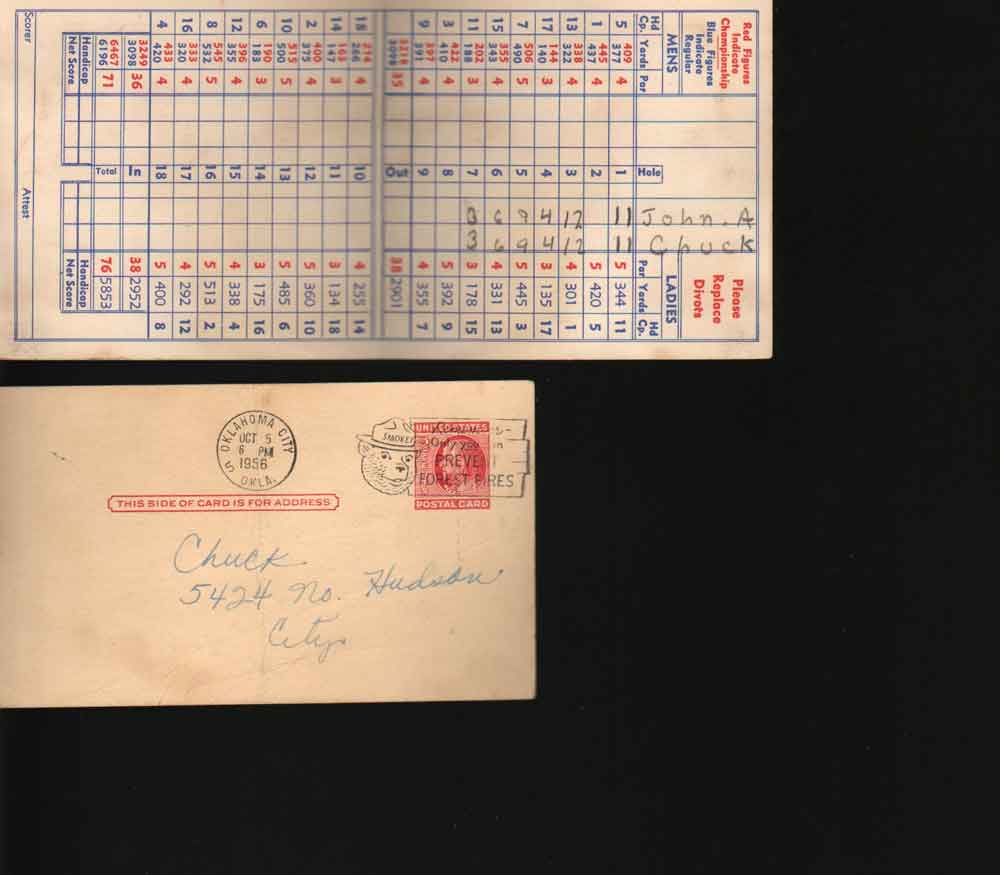 Red Figures
Indicate
Championship
Blue Figures
Indicate
Regular
Please
Replace
Divots
MENS LADIES
Hd Cp. Yards Par Hole John. A Chuck Par Yards Hd Cp.
5 409 377 4 1 11 11 5 344 11
1 445 437 4 2 5 420 5
13 338 322 4 3 12 12 4 301 1
17 144 140 3 4 4 4 3 135 17
7 506 490 5 5 9 9 5 445 3
15 355 343 4 6 6 6 4 331 13
11 202 188 3 7 3 3 3 178 15
3 422 410 4 8 5 392 9
9 397 391 4 9 4 355 7
35 Out 38 2901
18 266 4 10 4 255 14
14 163 147 3 11 3 134 18
2 400 375 4 12 5 360 10
10 515 500 5 13 5 485 6
6 190 183 3 14 3 175 16
12 396 355 4 15 4 338 4
8 545 532 5 16 5 513 2
16 333 320 4 17 4 292 12
4 433 420 4 18 5 400 8
3249 3098 36 In 38 2952
6467 6196 71 Total 76 5853
Handicap Handicap
Net Score Net Score
Scorer Attest
OKLAHOMA CITY
OCT 5
6 PM
1956
OKLA.
5
SMOKEY
PREVENT
FOREST FIRES
UNITED STATES
POSTAL CARD
THIS SIDE OF CARD IS FOR ADDRESS
Chuck
5424 No. Hudson
City